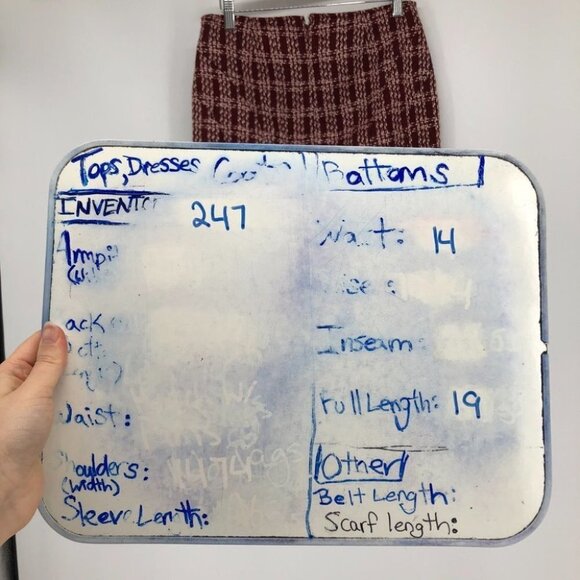 Tops, Dresses
INVENTO
247
Armpi
ack
Waist:
Shoulders:
(width)
Sleeve Length:
Bottoms
Waist: 14
Inseam
Full Length: 19
Other
Belt Length:
Scarf length: